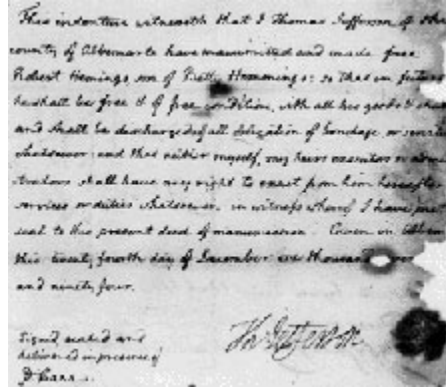 This indenture witnesseth that I Thomas Jefferson of the
county of Albemarle have manumitted and made free
Robert Hemings, son of Betty Hemmings: so that in future
he shall be free & of free condition, with all his goods &
and shall be discharged of all obligation of bondage or servitude
whatsoever: and that neither myself, my heirs executors or admi
strators shall have any right to exact from him hereafter
services or duties whatsoever. in witness whereof I have put
seal to this present deed of manumission. Given in Albem
this twenty fourth day of December one thousand
and ninety four.
Th: Jefferson
Signed, sealed and
delivered in presence of
D Carr.